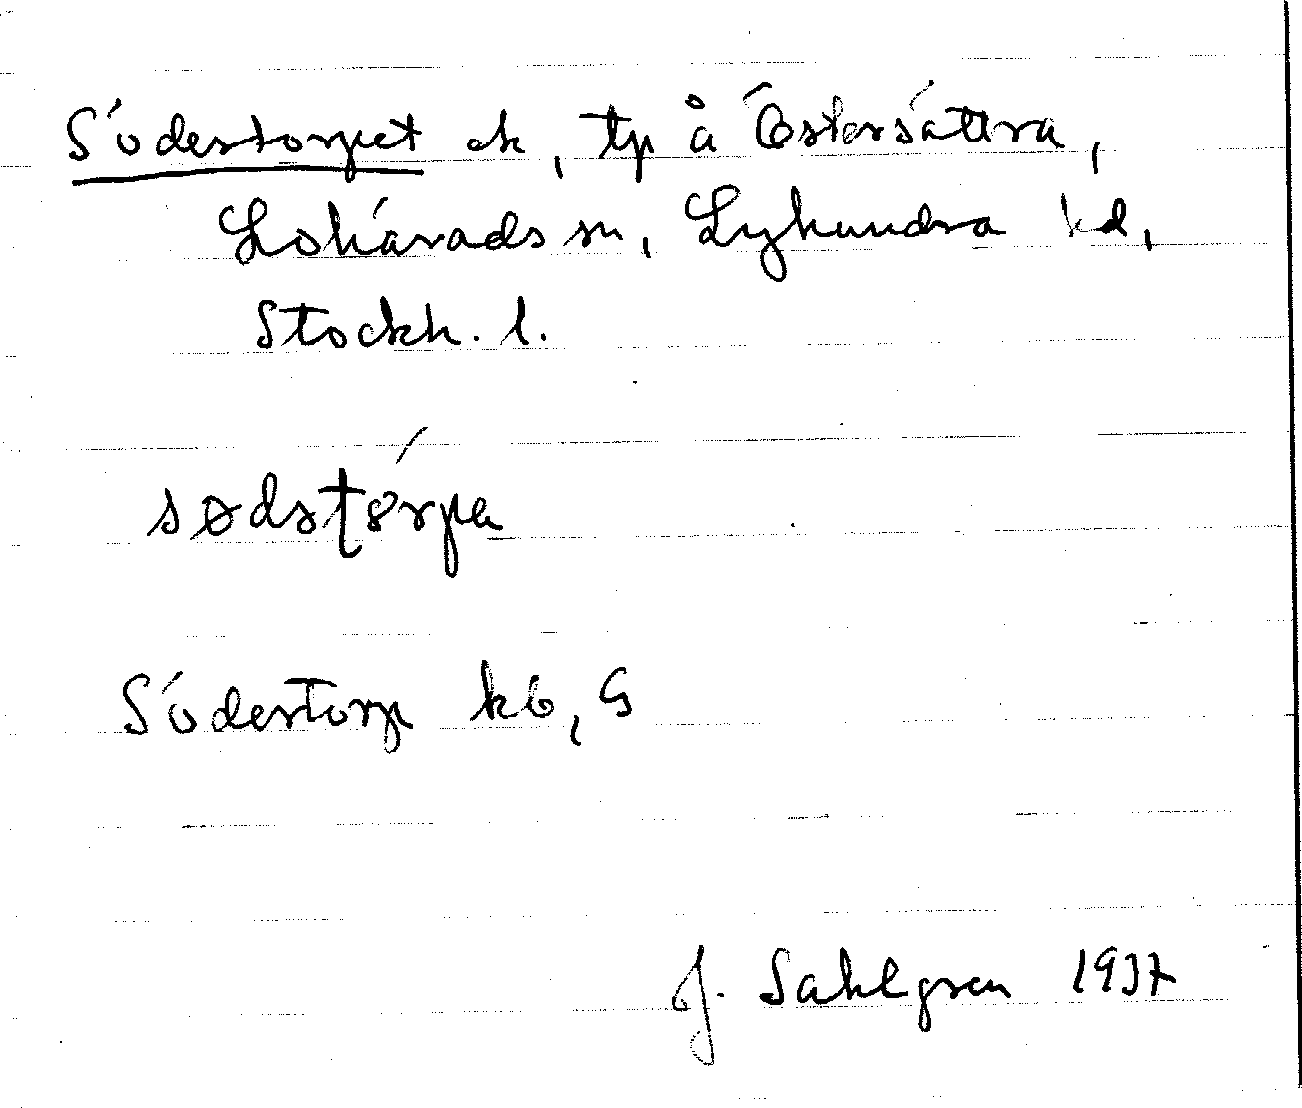 Södertorpet ek, tp å Östersättra,
Lohärads sn, Lyhundra hd,
Stockh. l.
Södertorp kb, G
J. Sahlgren 1937